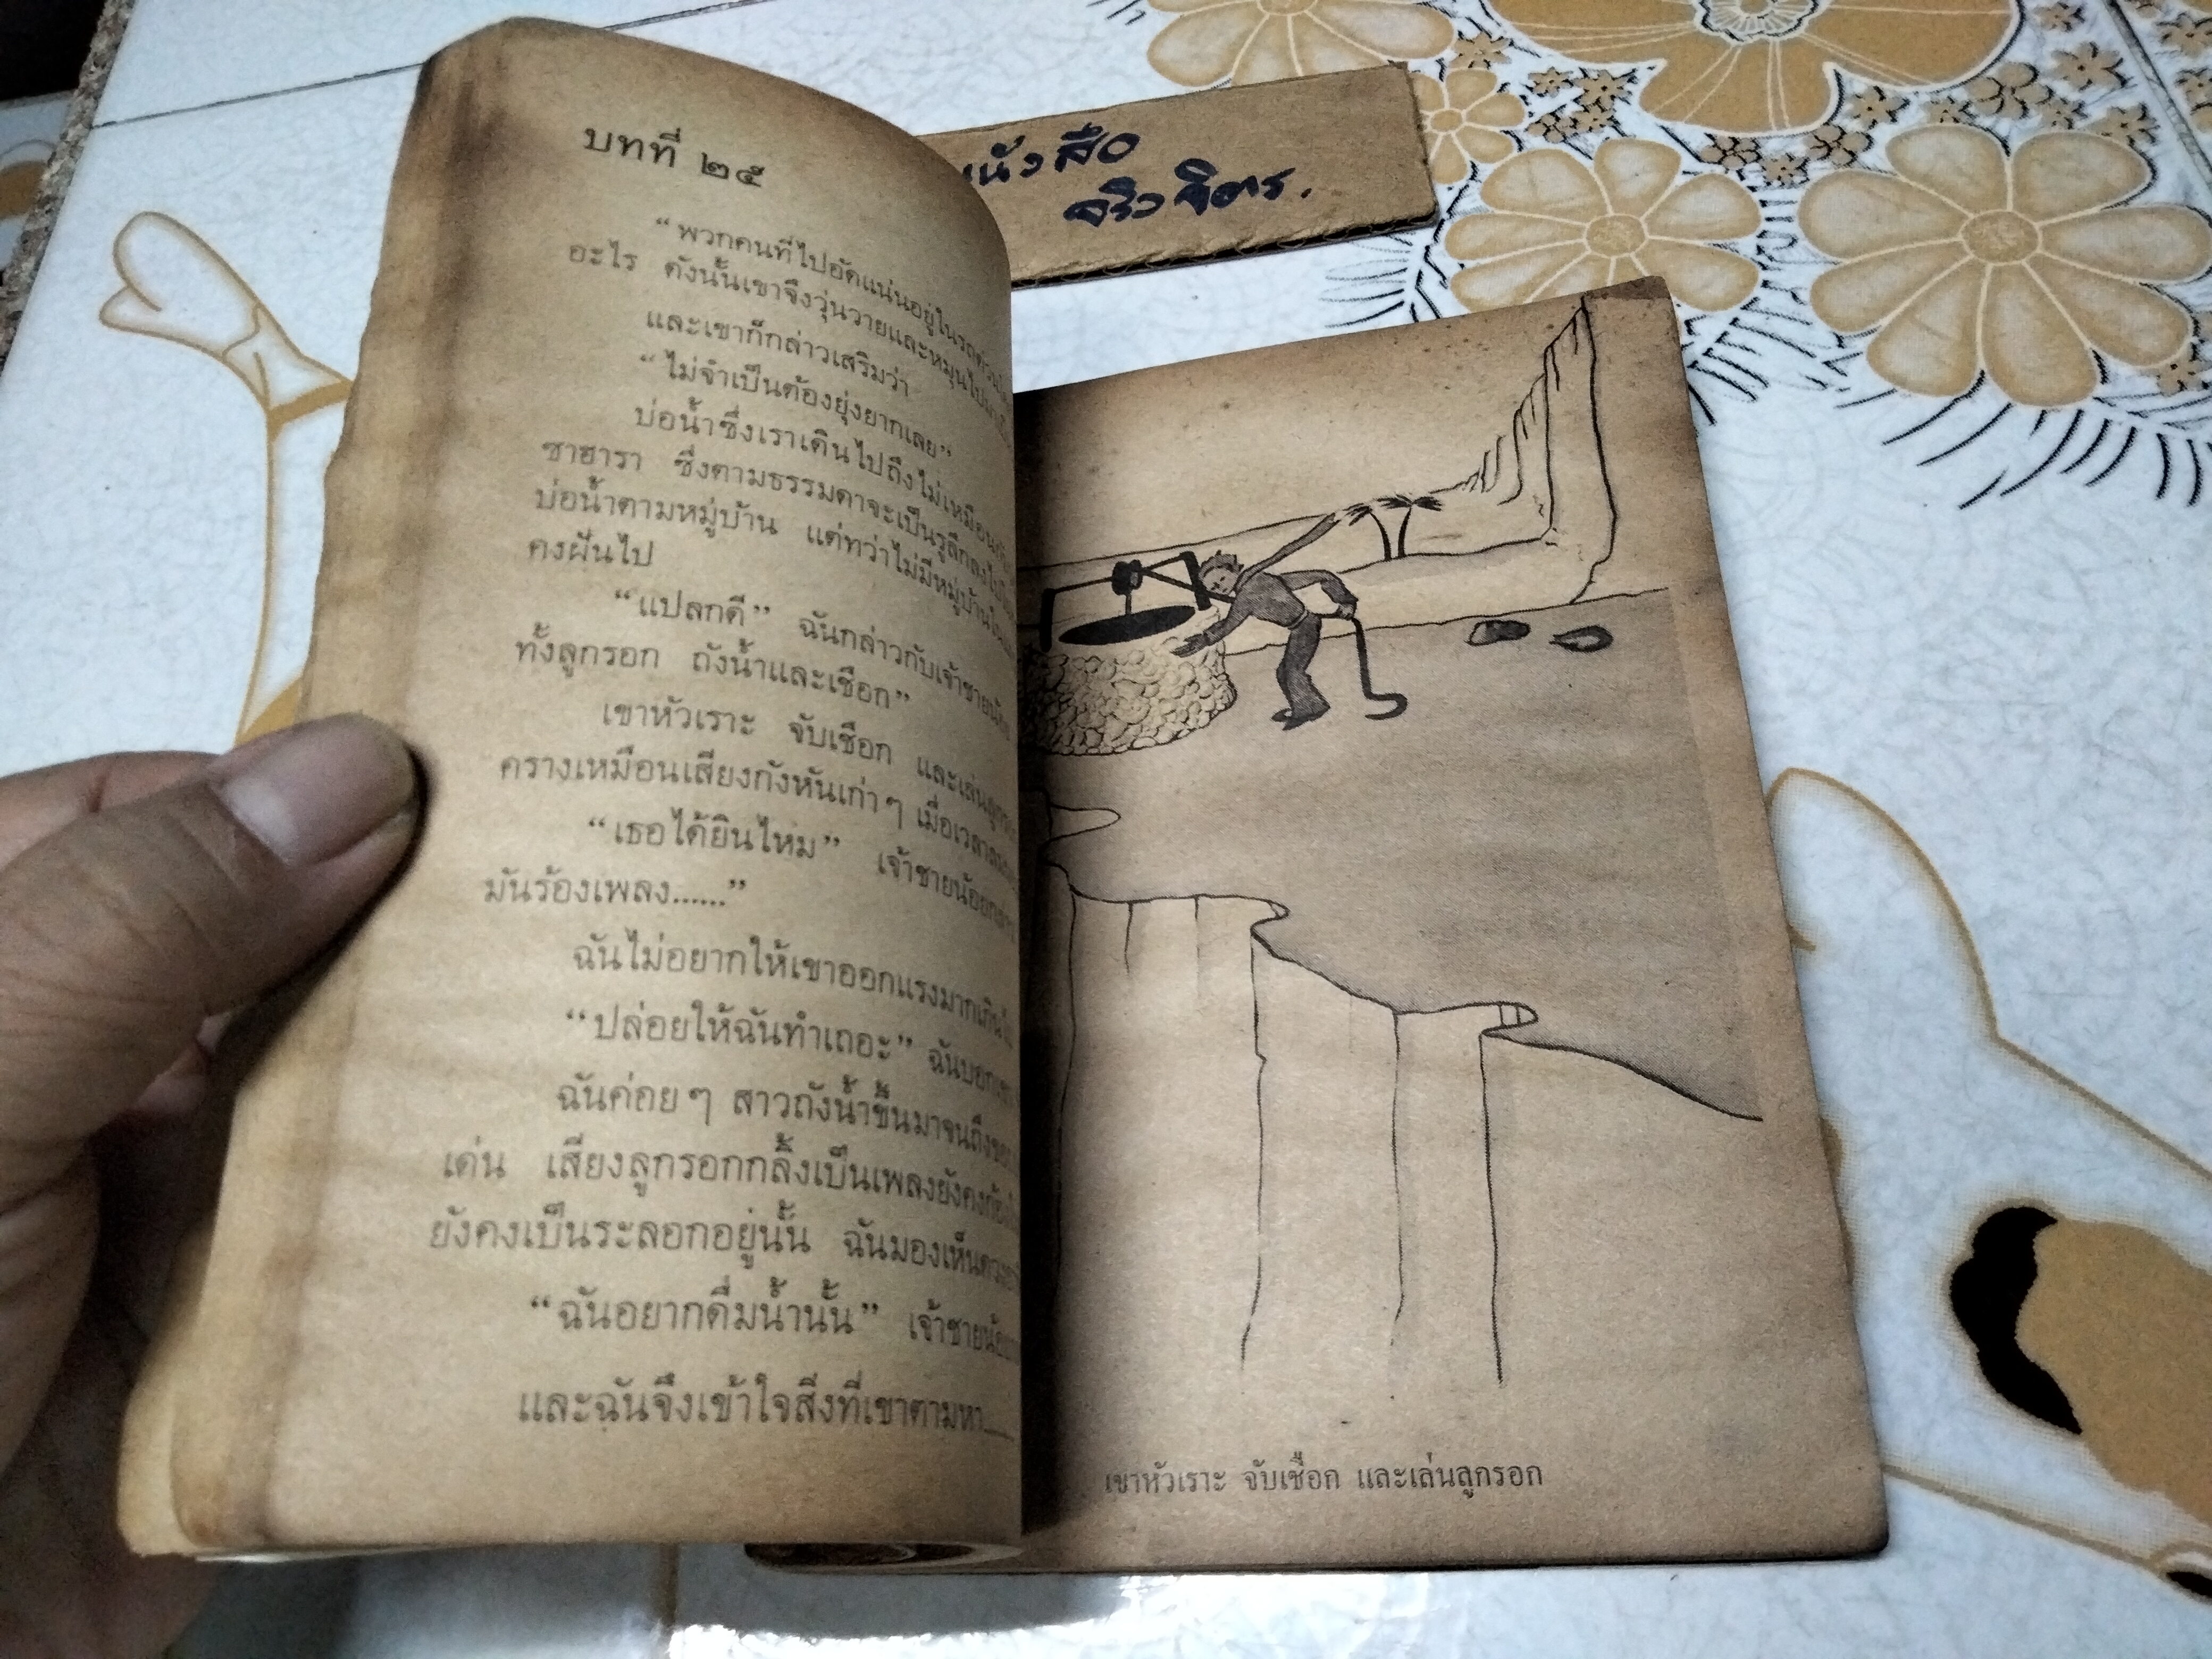 บทที่ ๒๕
“พวกคนที่ไปอัดแน่นอยู่ในรถด่วน
อะไร ดังนั้นเขาจึงวุ่นวายและหมุนไป
และเขาก็กล่าวเสริมว่า
“ไม่จำเป็นต้องยุ่งยากเลย”
บ่อน้ำซึ่งเราเดินไปถึงไม่เหมือน
ซาฮารา ซึ่งตามธรรมดาจะเป็นรูลึกลงไป
บ่อน้ำตามหมู่บ้าน แต่ทว่าไม่มีหมู่บ้าน
คงฝันไป
“แปลกดี” ฉันกล่าวกับเจ้าชายน้อย
ทั้งลูกรอก ถังน้ำและเชือก”
เขาหัวเราะ จับเชือก และเล่น
ครางเหมือนเสียงกังหันเก่าๆ เมื่อเวลา
“เธอได้ยินไหม” เจ้าชายน้อย
มันร้องเพลง......”
ฉันไม่อยากให้เขาออกแรงมากเกินไป
“ปล่อยให้ฉันทำเถอะ” ฉันบอก
ฉันค่อยๆ สาวถังน้ำขึ้นมาจนถึง
เด่น เสียงลูกรอกกลิ้งเป็นเพลงยังคง
ยังคงเป็นระลอกอยู่นั้น ฉันมองเห็น
“ฉันอยากดื่มน้ำนั้น” เจ้าชายน้อย
และฉันจึงเข้าใจสิ่งที่เขาตามหา
หนังสือ
จริวจิตร.
เขาหัวเราะ จับเชือก และเล่นลูกรอก